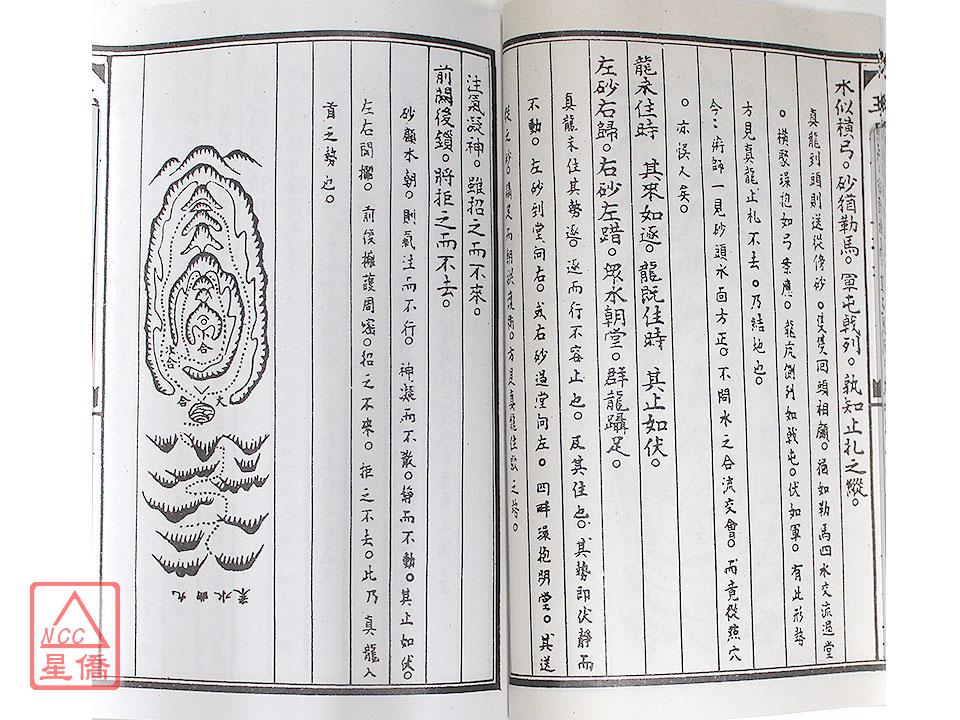 水似橫弓。砂猶勒馬。軍屯戟列。孰知止扎之蹤。
真龍到頭則送從傍砂。隻隻回頭相顧。猶如勒馬四水交流過堂
。橫繫環抱如弓案應。龍虎倒列如戟屯。伏如軍。有此形勢
方見真龍止札不去。乃結地也。
今〻術師一見砂頭水面方正。不問水之合流交會。而竟從照穴
。亦悞人矣。
龍未住時 其來如逐。龍既住時 其止如伏。
左砂右歸。右砂左踏。眾水朝堂。群龍躡足。
真龍未住其勢逐。逐而行不容止也。及其住也。其勢即伏靜而
不動。左砂到堂向右。或右砂過堂向左。四畔環抱明堂。其送
從之砂。躡足而朝拱護衛。方見真龍住歇之勢。
注氣凝神。雖招之而不來。
前關後鎖。將拒之而不去。
砂顧水朝。則氣注而不行。神凝而不散。靜而不動。其止如伏。
左右關攔。前後擁護周密。招之不來。拒之不去。此乃真龍入
首之勢也。
合
大合
九曲水來
NCC
星僑